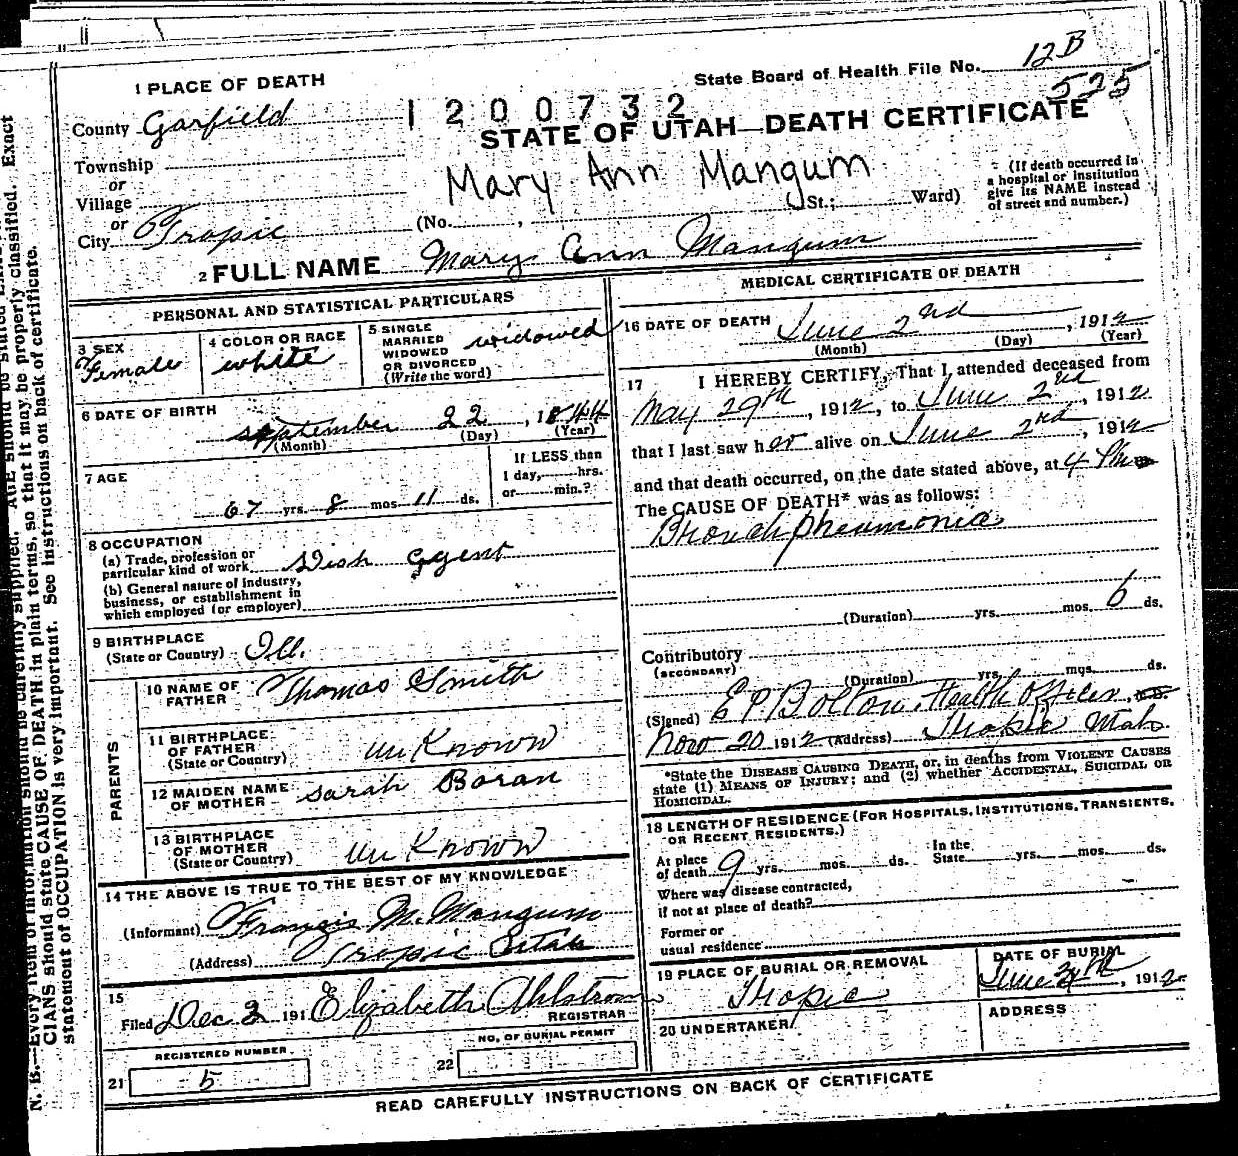 State Board of Health File No. 12B
525
1 PLACE OF DEATH
1200732
County Garfield
STATE OF UTAH—DEATH CERTIFICATE
Township
or
Village
or
City Tropic
Mary Ann Mangum
(No. , St.; Ward)
(If death occurred in
a hospital or institution
give its NAME instead
of street and number.)
2 FULL NAME Mary Ann Mangum
PERSONAL AND STATISTICAL PARTICULARS
3 SEX
Female
4 COLOR OR RACE
white
5 SINGLE
MARRIED
WIDOWED
OR DIVORCED
(Write the word)
widowed
6 DATE OF BIRTH
September 22, 1844
(Month) (Day) (Year)
7 AGE
67 yrs. 8 mos. 11 ds.
If LESS than
1 day, hrs.
or min.?
8 OCCUPATION
(a) Trade, profession or
particular kind of work
(b) General nature of industry,
business, or establishment in
which employed (or employer)
9 BIRTHPLACE
(State or Country) Ill.
PARENTS
10 NAME OF
FATHER Thomas Smith
11 BIRTHPLACE
OF FATHER
(State or Country) un Known
12 MAIDEN NAME
OF MOTHER Sarah Boran
13 BIRTHPLACE
OF MOTHER
(State or Country) un Known
14 THE ABOVE IS TRUE TO THE BEST OF MY KNOWLEDGE
(Informant) Francis M. Mangum
(Address) Tropic Utah
15
Filed Dec 2 191 Elizabeth Ahlstrom
REGISTRAR
REGISTERED NUMBER
21 5
NO. OF BURIAL PERMIT
22
MEDICAL CERTIFICATE OF DEATH
16 DATE OF DEATH June 2nd, 1912
(Month) (Day) (Year)
17 I HEREBY CERTIFY, That I attended deceased from
May 29th, 1912, to June 2nd, 1912
that I last saw her alive on June 2nd, 1912
and that death occurred, on the date stated above, at 4 Pm
The CAUSE OF DEATH* was as follows:
Bronch pneumonia
(Duration) yrs. mos. 6 ds.
Contributory
(SECONDARY)
(Duration) yrs. mos. ds.
(Signed) E P Bolton, Health Officer, M.D.
Nov 20 1912 (Address) Tropic Utah
*State the DISEASE CAUSING DEATH, or, in deaths from VIOLENT CAUSES
state (1) MEANS OF INJURY; and (2) whether ACCIDENTAL, SUICIDAL OR
HOMICIDAL.
18 LENGTH OF RESIDENCE (FOR HOSPITALS, INSTITUTIONS, TRANSIENTS,
OR RECENT RESIDENTS.)
At place
of death 9 yrs. mos. ds.
In the
State yrs. mos. ds.
Where was disease contracted,
if not at place of death?
Former or
usual residence
19 PLACE OF BURIAL OR REMOVAL
Tropic
DATE OF BURIAL
June, 1912
20 UNDERTAKER
ADDRESS
READ CAREFULLY INSTRUCTIONS ON BACK OF CERTIFICATE
N. B.—Every item of information should be carefully supplied. AGE should be stated Exact
CIANS should state CAUSE OF DEATH in plain terms, so that it may be properly classified.
statement of OCCUPATION is very important. See instructions on back of certificate.